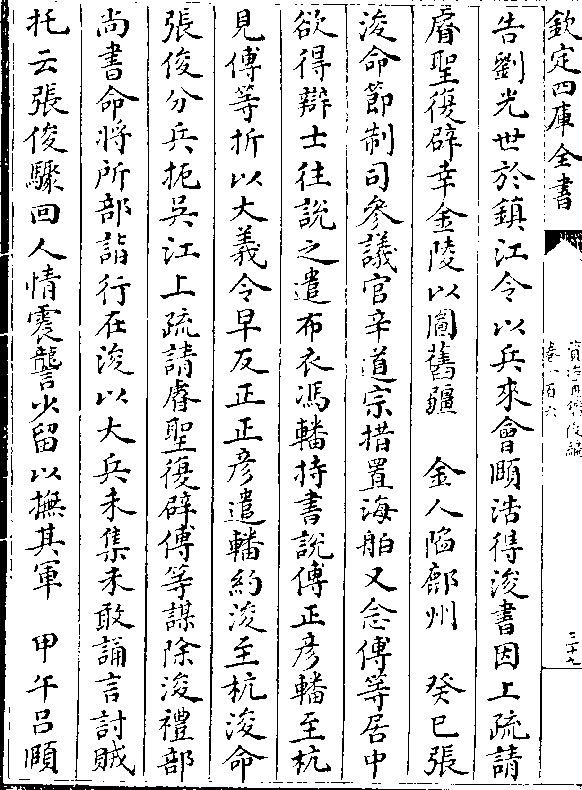 欽定四庫全書
資治通鑑後編
卷一百六
三十九
告劉光世於鎮江令以兵來會頤浩得浚書因上疏請
睿聖復辟幸金陵以圖舊疆　金人陷鄜州　癸巳張
浚命節制司參議官辛道宗措置海舶又念傅等居中
欲得辯士往說之遣布衣馮轓持書說傅正彥轓至杭
見傅等折以大義令早反正正彥遣轓約浚至杭浚命
張俊分兵扼吳江上疏請睿聖復辟傅等謀除浚禮部
尚書命將所部詣行在浚以大兵未集未敢誦言討賊
托云張俊驟回人情震讋少留以撫其軍　甲午呂頤